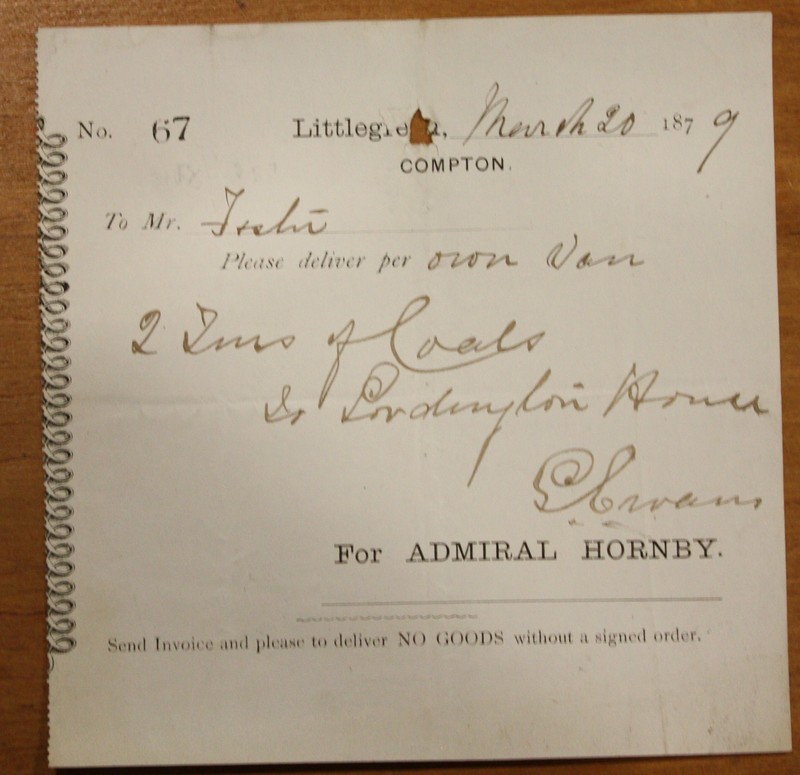 No. 67 Littlegreen, March 20 1879
COMPTON.
To Mr.
Please deliver per own Van
2 Tons of Coals
To Lordington House
G Evans
For ADMIRAL HORNBY.
Send Invoice and please to deliver NO GOODS without a signed order.